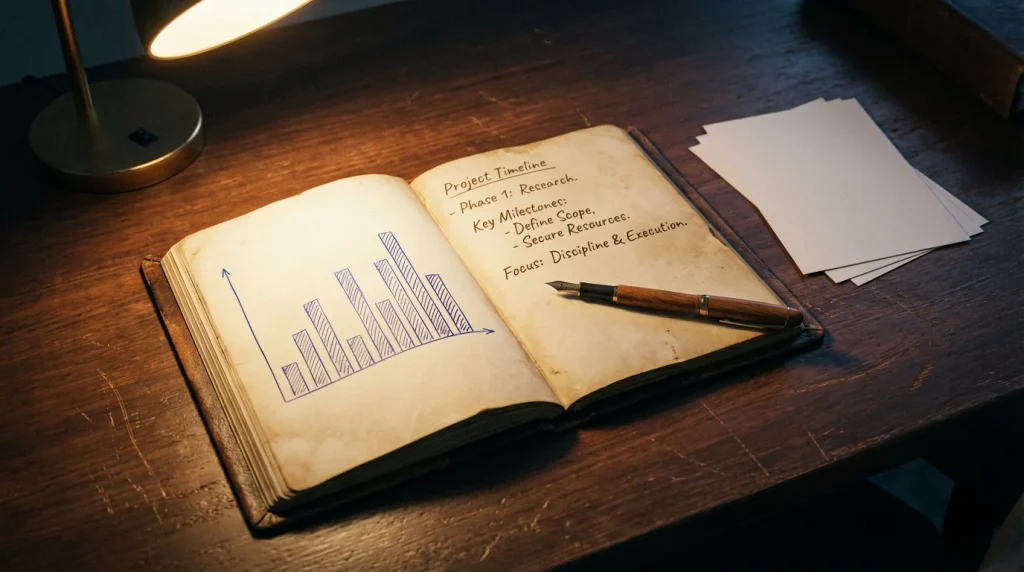 Project Timeline
- Phase 1: Research.
Key Milestones:
- Define Scope,
- Secure Resources.
Focus: Discipline & Execution.